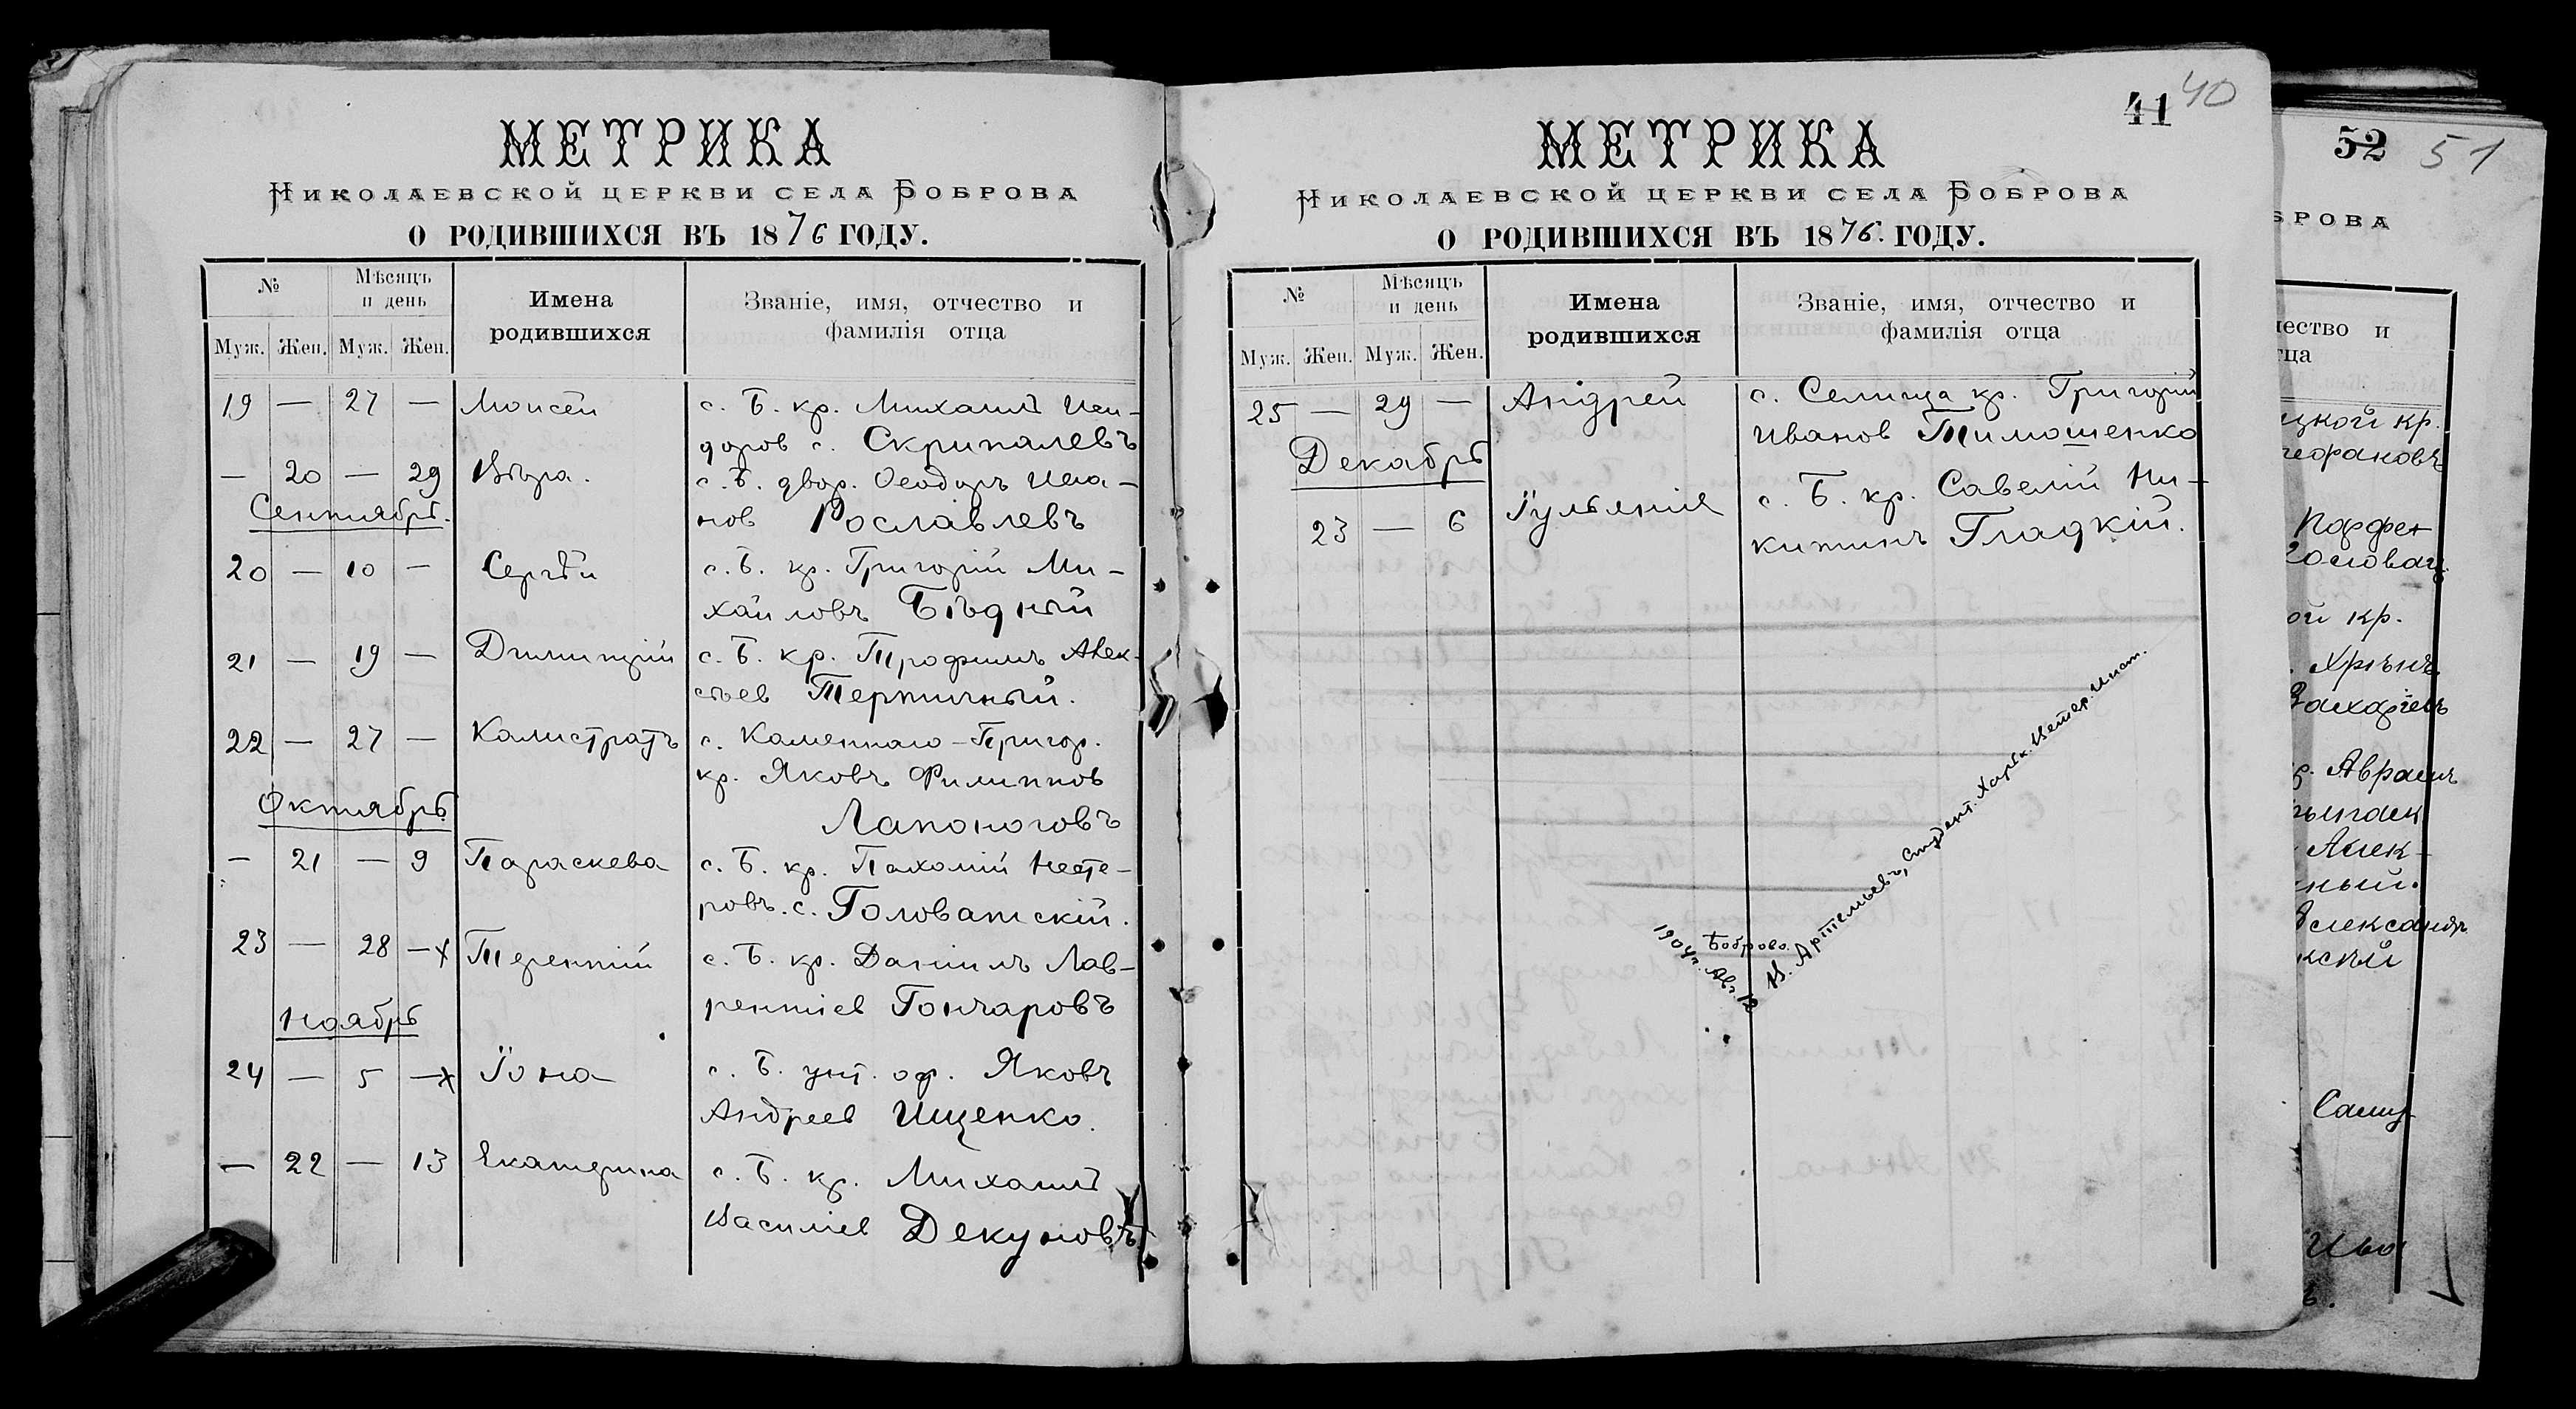 МЕТРИКА
НИКОЛАЕВСКОЙ ЦЕРКВИ СЕЛА БОБРОВА
О РОДИВШИХСЯ ВЪ 1876 ГОДУ.
№ Мѣсяцъ и день Имена родившихся Званіе, имя, отчество и фамилія отца
Муж. Жен. Муж. Жен.
19 — 27 — Моисей с. Б. кр. Михаилъ Иси-
доров с. Скрипалевъ
— 20 — 29 Вѣра. с. Б. двор. Ѳеодоръ Ива-
нов Рославлевъ
Сентябрь.
20 — 10 — Сергѣй с. Б. кр. Григорій Ми-
хайловъ Бѣдный
21 — 19 — Димитрій с. Б. кр. Трофимъ Алек-
сѣев Терпичный.
22 — 27 — Калистратъ с. Каменнаго-Пригор.
кр. Яковъ Филиппов
Лапоноговъ
Октябрь
— 21 — 9 Параскева с. Б. кр. Пахомій Несте-
ровъ. с. Головатскій.
23 — 28 — х Терентій с. Б. кр. Даніилъ Лав-
рентіев Гончаровъ
Ноябрь
24 — 5 — х Іона с. Б. унт. оф. Яковъ
Андреев Ищенко.
— 22 — 13 Екатерина с. Б. кр. Михаилъ
Василіев Декуновъ
41 40
МЕТРИКА
НИКОЛАЕВСКОЙ ЦЕРКВИ СЕЛА БОБРОВА
О РОДИВШИХСЯ ВЪ 1876. ГОДУ.
№ Мѣсяцъ и день Имена родившихся Званіе, имя, отчество и фамилія отца
Муж. Жен. Муж. Жен.
25 — 29 — Андрей с. Селища кр. Григорій
Иванов Тимошенко
Декабрь
23 — 6 Іульянія с. Б. кр. Савелій Ни-
китинъ Гладкій.
Боброво.
1904 г. Авг. 18
В. Артемьевъ, Студент. Харьк. Ветер. Инст.
52 51
БРОВА
чество и
тца
цкой кр.
Парфен
ой кр.
Хрѣнъ
Захаріевъ
Аврамъ
Алек-
ный.
Александръ
Ива